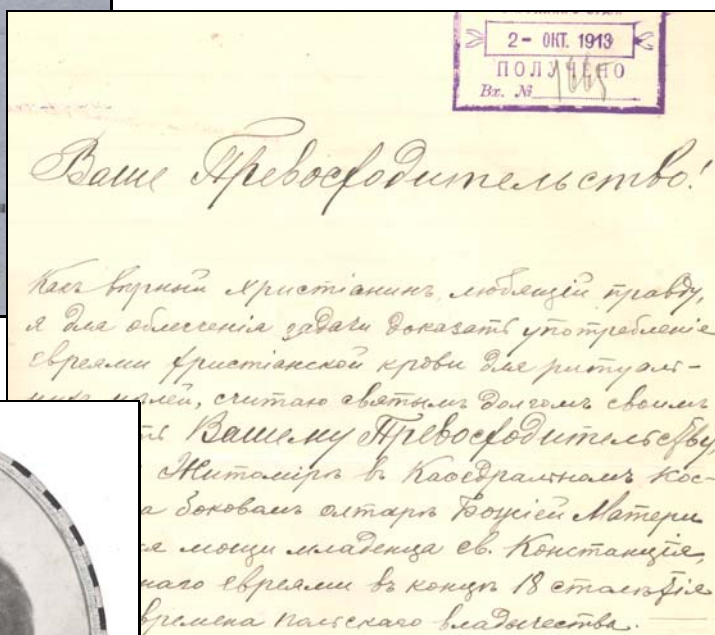 2 - ОКТ. 1913
ПОЛУЧЕНО
Вх. № 1665
Ваше Превосходительство!
Какъ вѣрный христіанинъ, любящій правду,
я для облегченія задачи доказать употребленіе
евреями христіанской крови для ритуаль-
ныхъ цѣлей, считаю святымъ долгомъ своимъ
Вашему Превосходительству,
Житомірѣ въ Каѳедральномъ Кос-
боковомъ олтарѣ Божіей Матери
мощи младенца св. Констанція,
наго евреями въ концѣ 18 столѣтія
времена польскаго владычества.